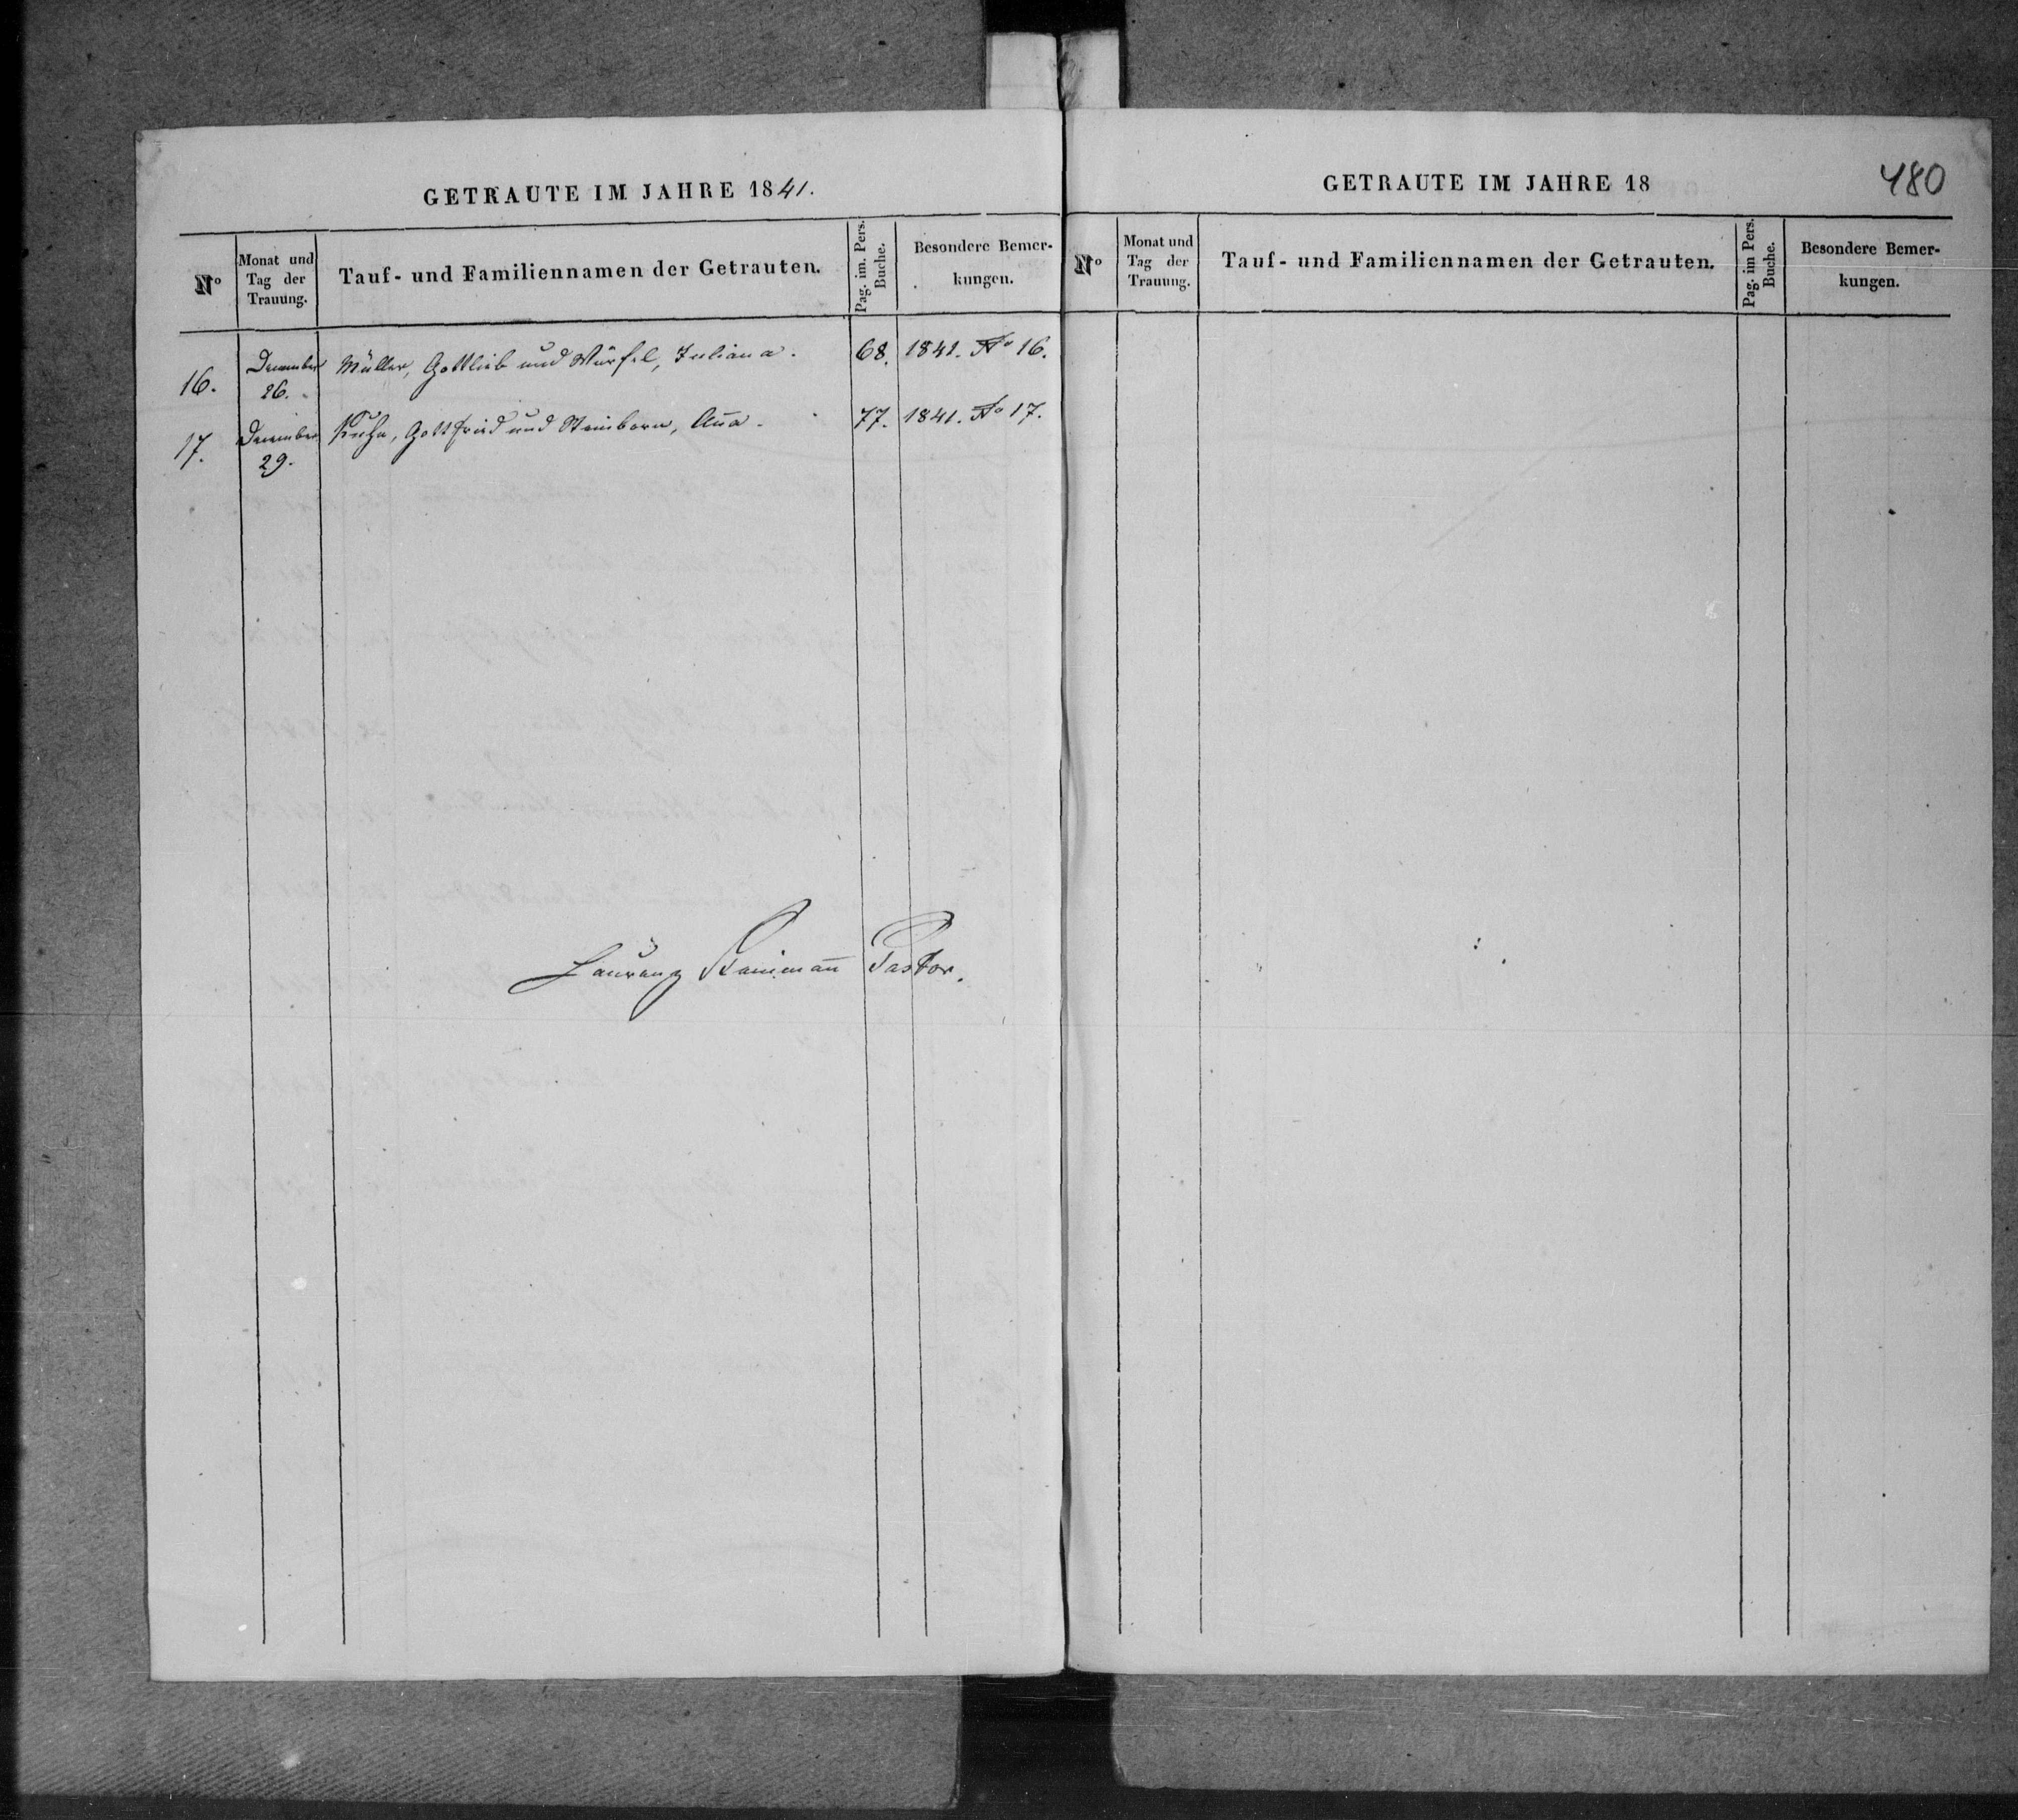 GETRAUTE IM JAHRE 1841.
No
Monat und
Tag der
Trauung.
Tauf- und Familiennamen der Getrauten.
Pag. im. Pers.
Buche.
Besondere Bemer-
kungen.
16.
December
26.
Müller, Gottlieb und Würfel, Juliana.
68.
1841. No 16.
17.
December
29.
Kuhn, Gottfried und Steinborn, Aña.
77.
1841. No 17.
Laurenz Pastor.
GETRAUTE IM JAHRE 18
480
No
Monat und
Tag der
Trauung.
Tauf- und Familiennamen der Getrauten.
Pag. im Pers.
Buche.
Besondere Bemer-
kungen.